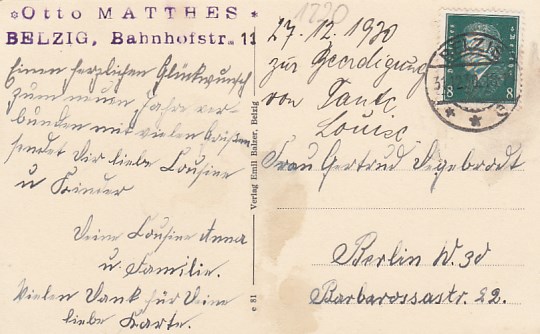 *Otto MATTHES*
BELZIG, Bahnhofstr. 13
Einen herzlichen Glückwunsch
zum neuen Jahr ver-
bunden mit vielen Grüßen
sendet Dir liebe Cousine
u Kinder
Deine Cousine Anna
u. Familie.
Vielen Dank für Deine
liebe Karte.
Verlag Emil Balzer, Belzig
e 81
1220
27.12.1930
zur Beerdigung
von Tante
Louise
BELZIG
8 8
Frau Gertrud Segebrodt
Berlin W. 30
Barbarossastr. 22.